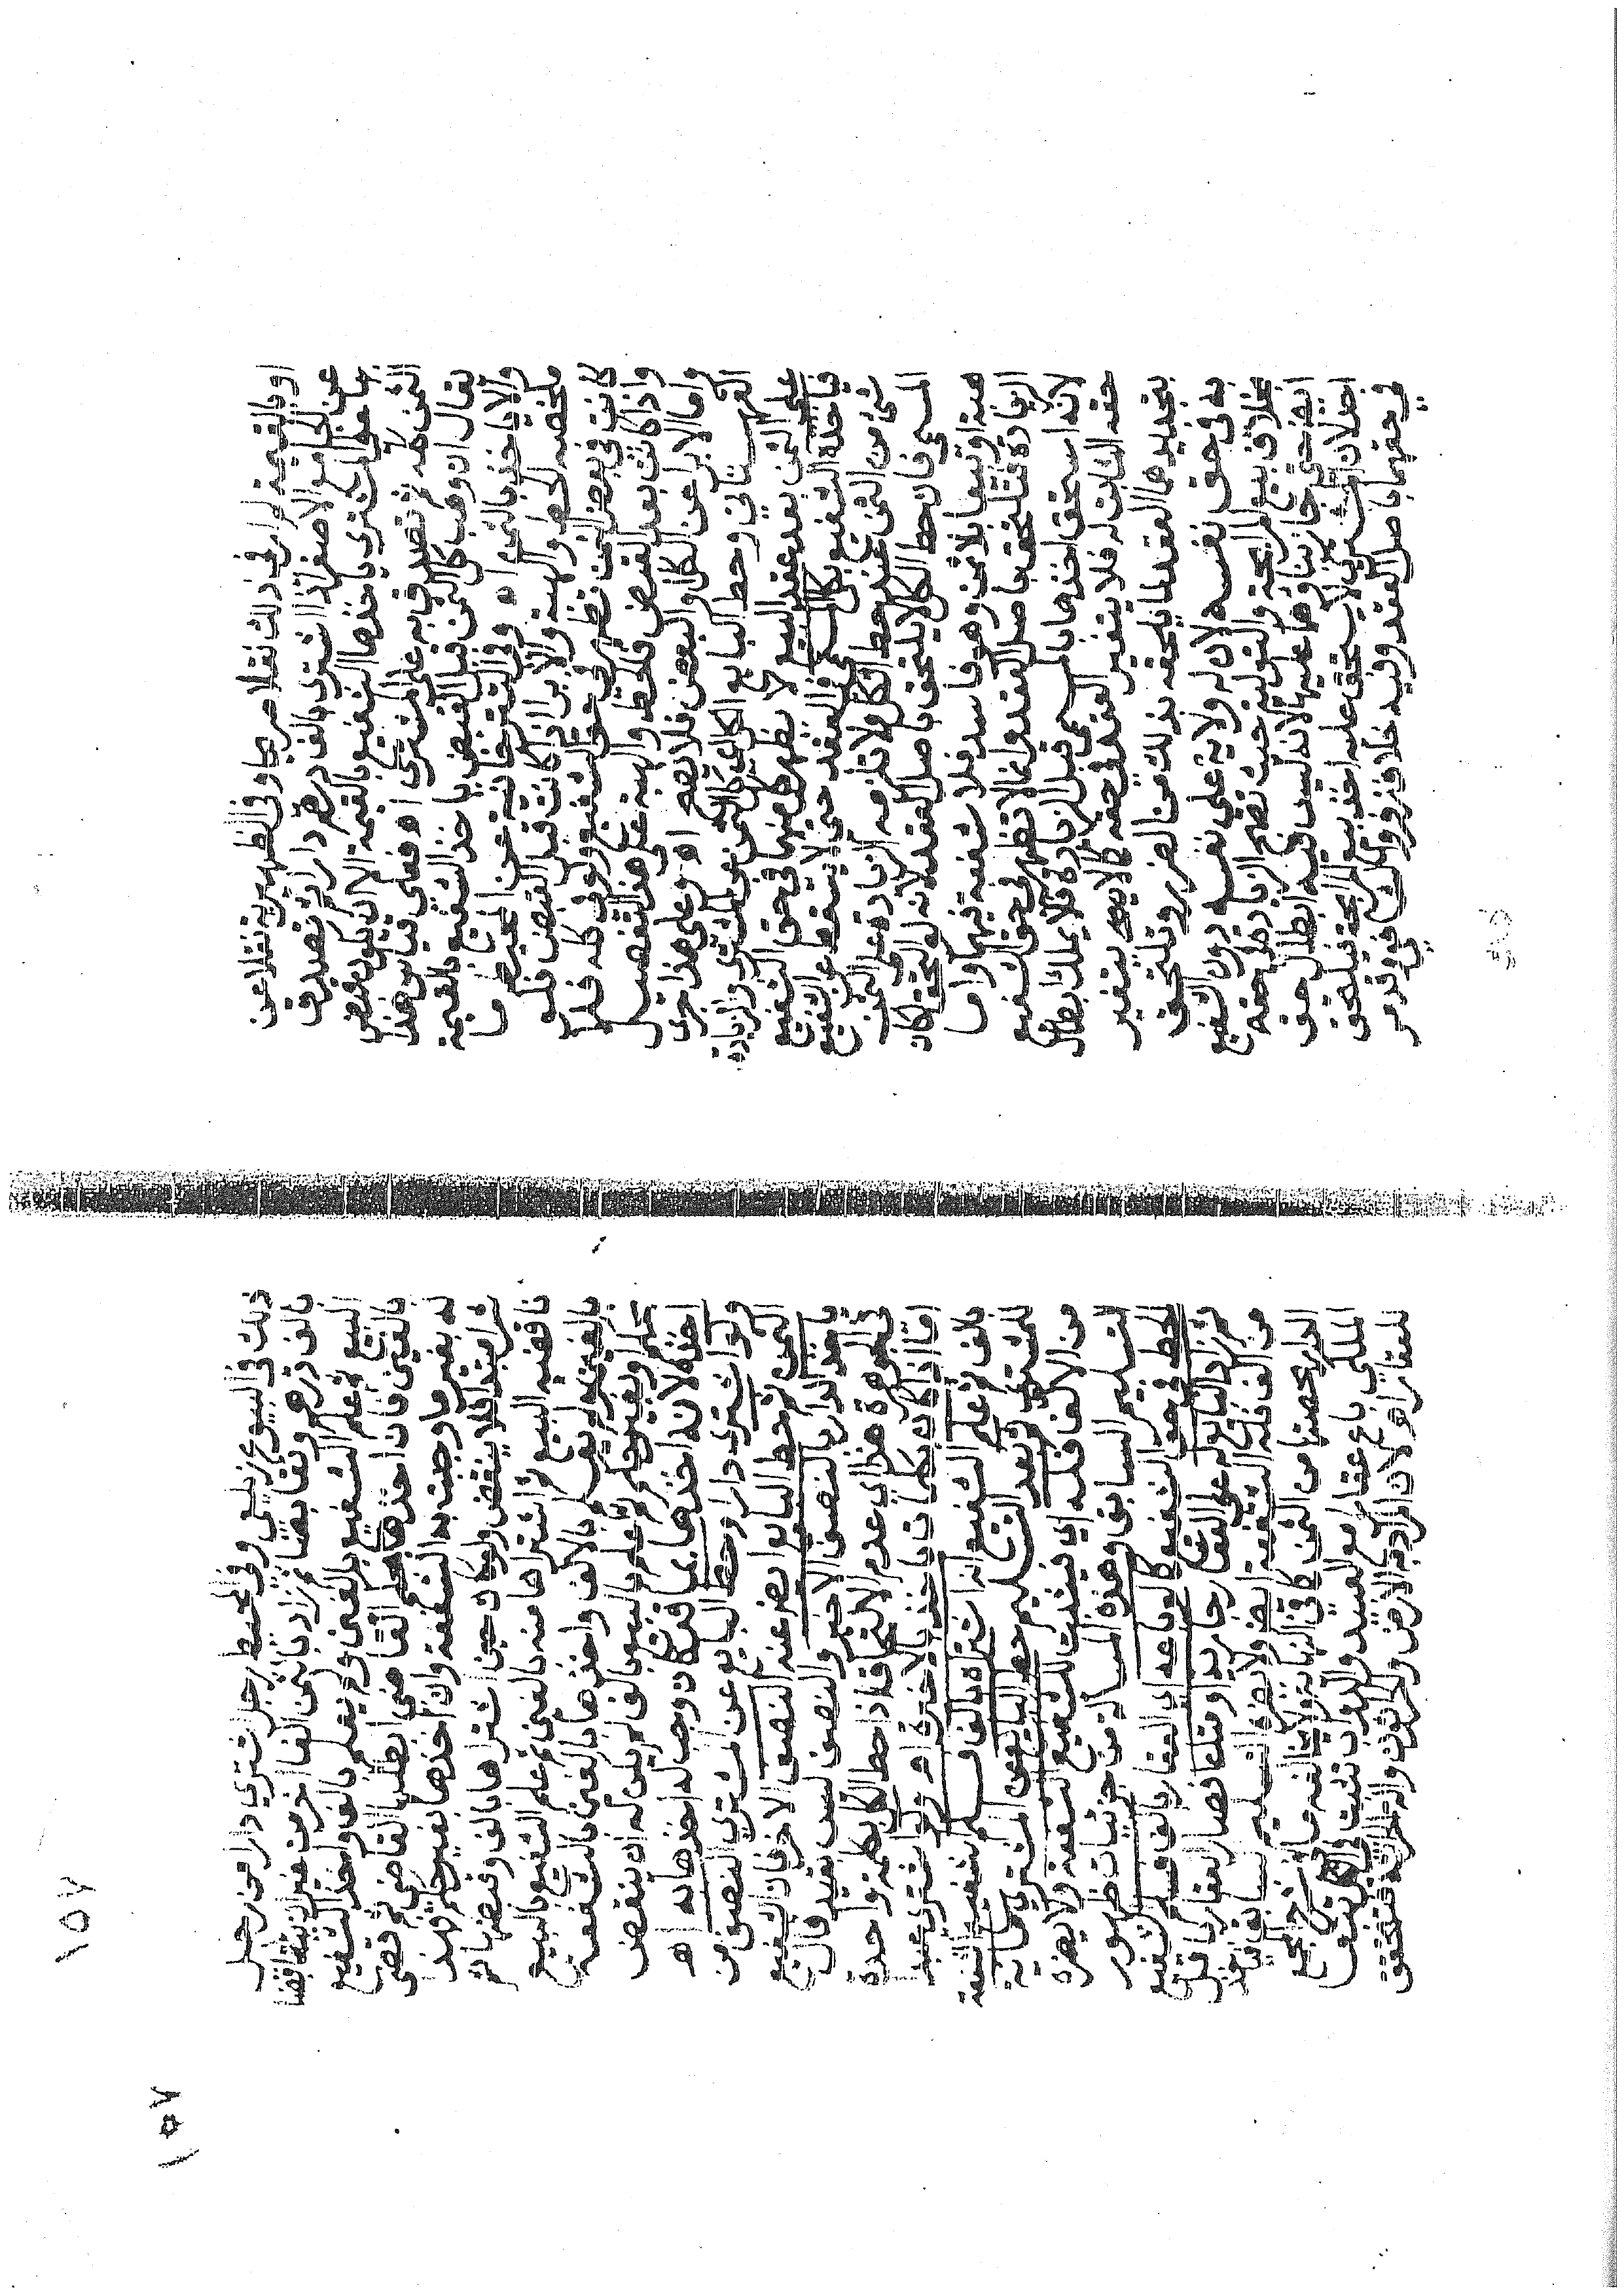 او بالقيمة لم ار في ذلك نقلا صريحا وفي الظهيرية نقلا عن
عن الجامع الاصغر اذا اشترى بالف درهم دارا ثم تصدق
بها على المشتري ياخذها الشفيع بالقيمة الا ان يكون بعض
الثمن كله ثم تصدق به على المشتري اه فعلى قياس هذا
يقال ان وهب كل الثمن قبل القبض ياخذ الشفيع بالقيمة
والا ياخذ بالثمن اه وفي التترخانية عن المحيط ما
ملخصه الحط والهبة والابرا اذا كانت قبل القبض فلو
كانت في بعض الثمن تظهر في حق الشفيع ولو في كله فلا
واذا كانت بعد القبض فالحط والهبة على هذا التفصيل
واما الابرا عن الكل او البعض فلا يصح اه وعلى هذا جرى
القهستاني وحط البايع الكل اي كل الثمن عن المشتري والزيادة
على الثمن بعد عقد البيع لا يظهر كل منهما في حق الشفيع
فياخذه الشفيع بكل المسمى في العقد حتى لا يسقط عن الشفيع
شئ من الثمن عند حط الكل ولا تلزمه الزيادة على الثمن
المسمى فان حط الكل لا يلتحق باصل العقد لانه لو التحق لكان
هبة او بيعا بلا ثمن وهو فاسد فلا شفعة فيهما واما
الزيادة فتلتحق باصل العقد وانما لا تظهر في حق الشفيع
لانه استحق اخذها بالمسمى قبل الزيادة فلا يملك ابطال
حقه الثابت له فلا يتغير العقد في حقه كما لا يتغير
بتجديدهما العقد لما يلحقه بذلك من الضرر وتلتحق
به في حق نفسه لان له ولاية على نفسه دون الشفيع
بخلاف بيع المرابحة والتولية حيث تصح الزيادة في حقه
ايضا حتى جاز بناوهما عليها لانه ليس فيه ابطال حق
احد لان المشتري لا يستحق عليه احد بيع المرابحة فيلتحق
في حقهما باصل العقد وفيه خلاف زفر والشافعي وقد مر
ذلك في البيوع زيلعي وفي المحيط رجل اشترى دارا من رجل
بالف درهم وتقابضا ثم زاد بالثمن الفا اخر من غير ان يتناقضا
البيع ثم علم الشفيع بالفين ولم يعلم بالف واخذ الشفيع
بالفين فان اخذها بحكم القاضي ابطل القاضي ثم قضى
له بغير ما وجبت به الشفعة وان اخذها بغير حكم فهذا
شرا مبتدا فلا ينقض ولو كان حين اشتراها بالف وقبضها ثم
ناقضه البيع ثم اشتراها منه بالفين ثم علم الشفيع بالبيع
بالفين ولم يعلم بالالف واخذها بالفين بالشفعة
بحكم او بغير حكم ثم علم بالبيع بالف لم يكن له ان ينقض
اخذه لانه اخذها بما فيه كان وجب له اخذها به اه
ولو اشترى دارا وحط البايع عن المشتري النصف من
الثمن ثم حط البايع ايضا عنه النصف الاخر فان الشفيع
ياخذ الدار بالنصف الاخير والنصف ليس بقيد قال
في الجوهرة هذا اي عدم الالتحاق اذا حط الكل بكلمة واحدة
اما اذا كان بكلمات ياخذ بالاخيرة اه ولو اشترى عبد
بالف ثم علم الشفيع انه اشتراه بالف فسلم الشفيع الشفعة
للمشتري ثم بعد التسليم حط البايع عن المشتري مائة
من الالف فله اي فيثبت للشفيع الشفعة ولا يضره
التسليم السابق وهذه المسألة من جزئيات ظهور
الحط في حق الشفيع كما لو باعه اي العقار بالف فسلم الشفيع
ثم زاد البايع له على العقار جارية او متاعا فصار العقار باقل
من الف فله الشفعة ايضا ولا يضره التسليم السابق
الدار بحصتها من الثمن كما في البزازية ولا يخالفه ما
الملكي باع عقارا مع العبيد والدواب تثبت في الكل
للعقار انه لان المراد به الارض والحراثون والة الحراثة فتتحقق
١٥٧
١٥٧